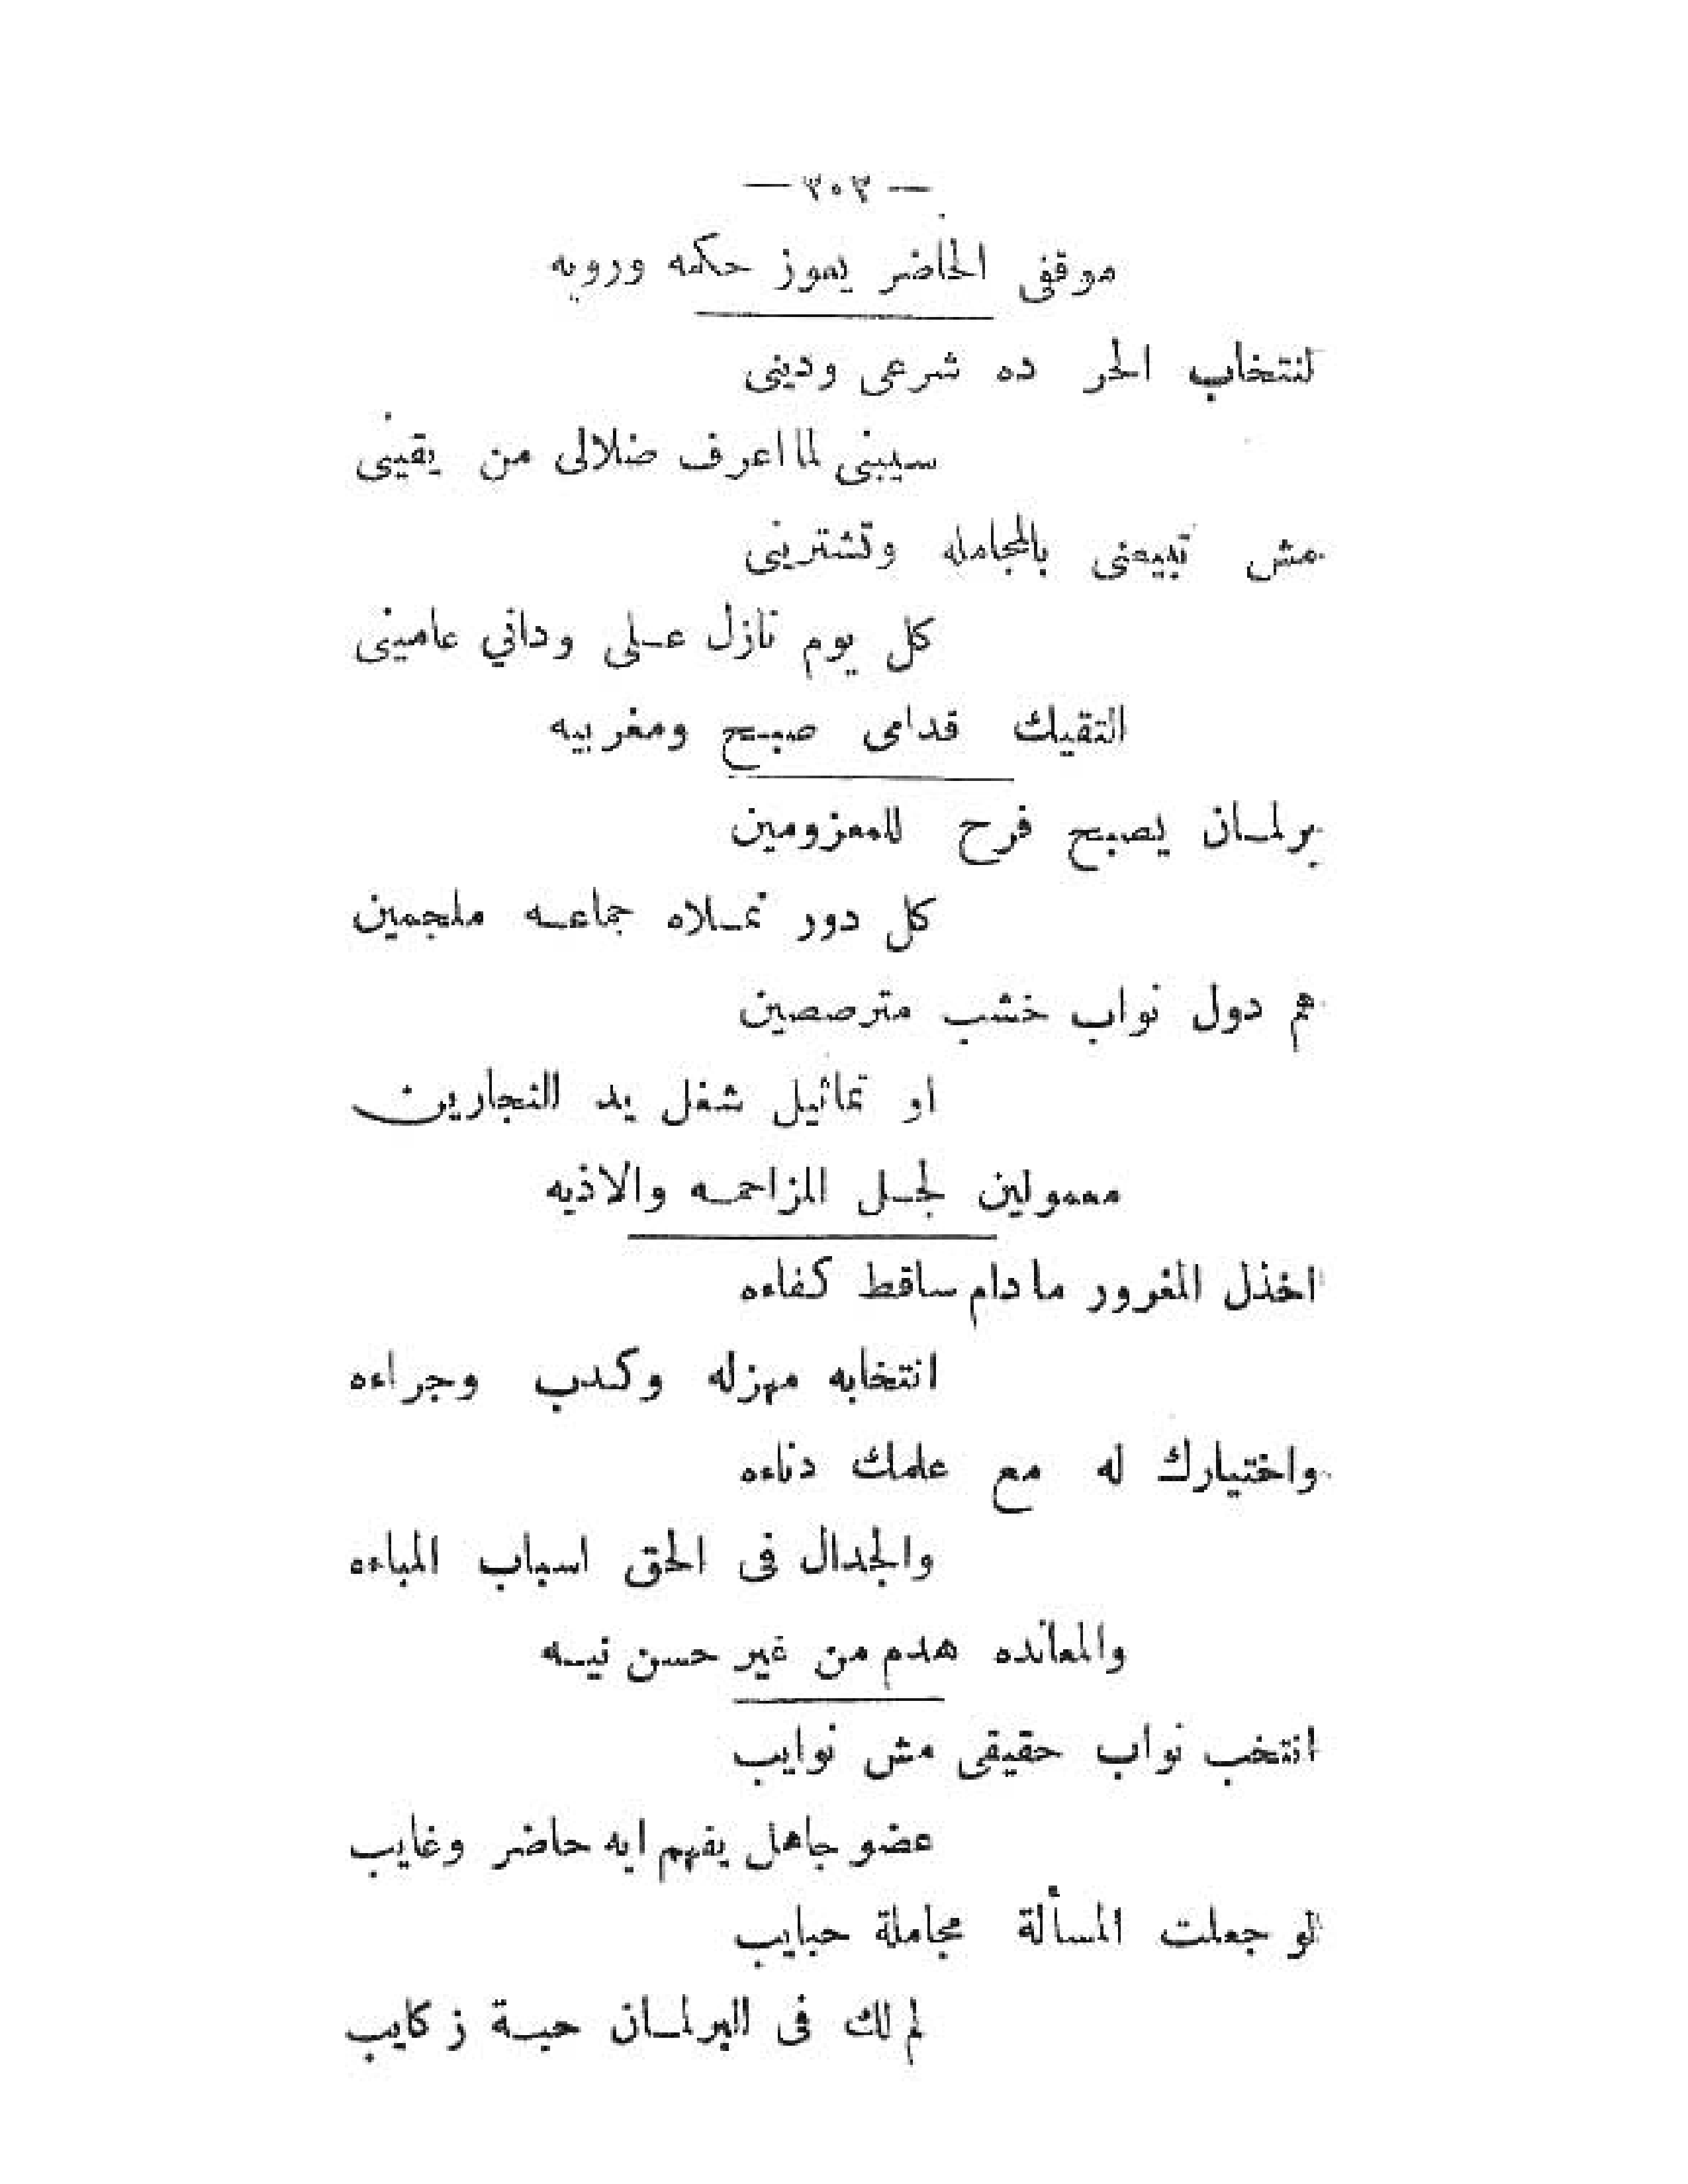 — ٣٠٣ —
موقفى الحاضر يعوز حكمه ورويه
لنتخاب الحر ده شرعى ودينى
سيبنى لما اعرف ضلالى من يقينى
مش تبيعنى بالمجامله وتشترينى
كل يوم نازل على وداني عامينى
التقيك قدامى صبح ومغربيه
برلمان يصبح فرح للمعزومين
كل دور تملاه جماعه ملجمين
هم دول نواب خشب مترصصين
او تماثيل شغل يد النجارين
معمولين لجل المزاحمه والاذيه
اخذل المغرور مادام ساقط كفاءه
انتخابه مهزله وكدب وجراءه
واختيارك له مع علمك دناءه
والجدال فى الحق اسباب المباءه
والمعانده هدم من غير حسن نيه
انتخب نواب حقيقى مش نوايب
عضو جاهل يفهم ايه حاضر وغايب
لو جعلت المسألة مجاملة حبايب
لم لك فى البرلمان حبة زكايب